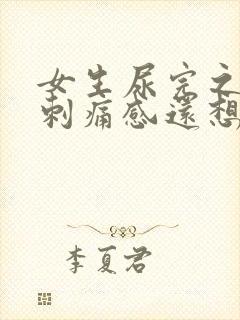 女生尿完之
刺痛感還想
李夏君